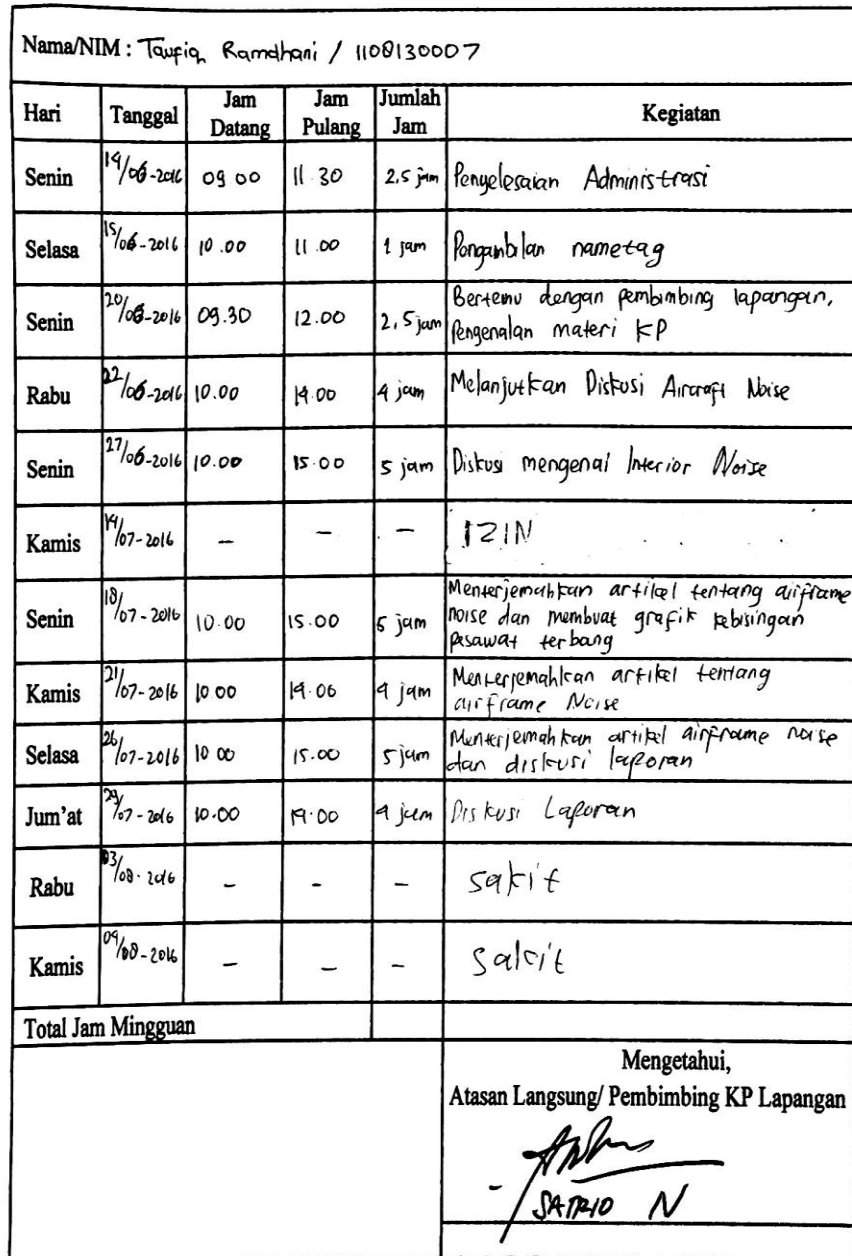 Nama/NIM : Taufiq Ramdhani / 1108130007
Hari Tanggal Jam Datang Jam Pulang Jumlah Jam Kegiatan
Senin 14/06-2016 09 00 11 30 2,5 jam Penyelesaian Administrasi
Selasa 15/06-2016 10.00 11.00 1 jam Pengambilan nametag
Senin 20/06-2016 09.30 12.00 2,5 jam Bertemu dengan pembimbing lapangan,
Pengenalan materi KP
Rabu 22/06-2016 10.00 14.00 4 jam Melanjutkan Diskusi Aircraft Noise
Senin 27/06-2016 10.00 15.00 5 jam Diskusi mengenai Interior Noise
Kamis 14/07-2016 – – – IZIN
Senin 18/07-2016 10.00 15.00 5 jam Menterjemahkan artikel tentang airframe
noise dan membuat grafik kebisingan
pesawat terbang
Kamis 21/07-2016 10 00 14.00 4 jam Menterjemahkan artikel tentang
airframe Noise
Selasa 26/07-2016 10 00 15.00 5 jam Menterjemahkan artikel airframe noise
dan diskusi laporan
Jum'at 29/07-2016 10.00 14.00 4 jam Diskusi Laporan
Rabu 03/08-2016 - - - sakit
Kamis 04/08-2016 - - - Sakit
Total Jam Mingguan
Mengetahui,
Atasan Langsung/ Pembimbing KP Lapangan
SATRIO N